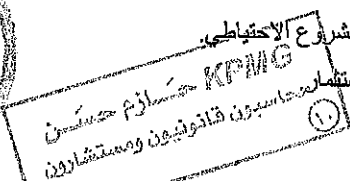 شروع الاحتياطي.
ستثمار
KPMG حازم حسن
محاسبون قانونيون ومستشارون
(١٠)